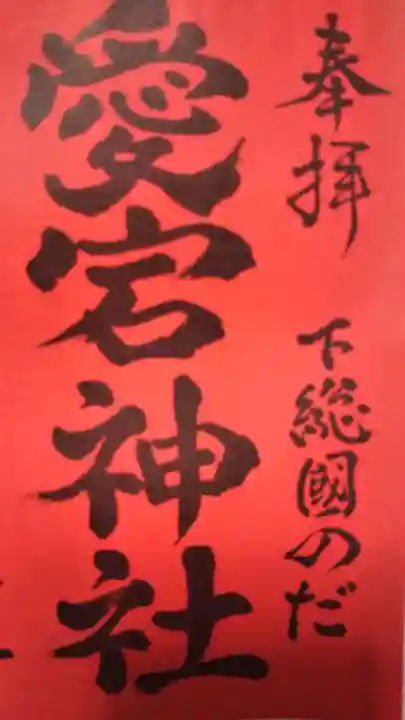 奉拝
下総國のだ
愛宕神社